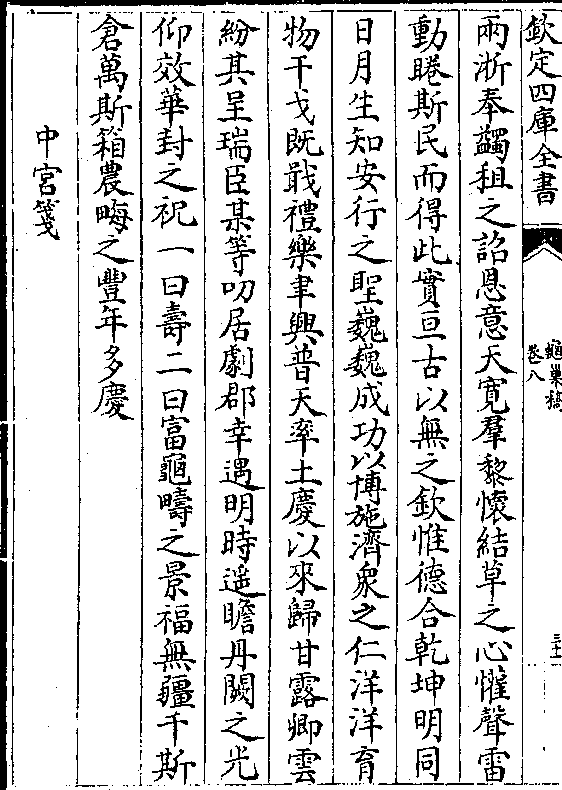 欽定四庫全書
龜巢稿
卷八
三十一
兩浙奉蠲租之詔恩意天寬羣黎懷結草之心懽聲雷
動睠斯民而得此實亘古以無之欽惟德合乾坤明同
日月生知安行之聖巍巍成功以博施濟衆之仁洋洋育
物干戈既戢禮樂聿興普天率土慶以來歸甘露卿雲
紛其呈瑞臣某等叨居劇郡幸遇明時遥瞻丹闕之光
仰效華封之祝一曰壽二曰富龜疇之景福無疆千斯
倉萬斯箱農畮之豐年多慶
中宮箋